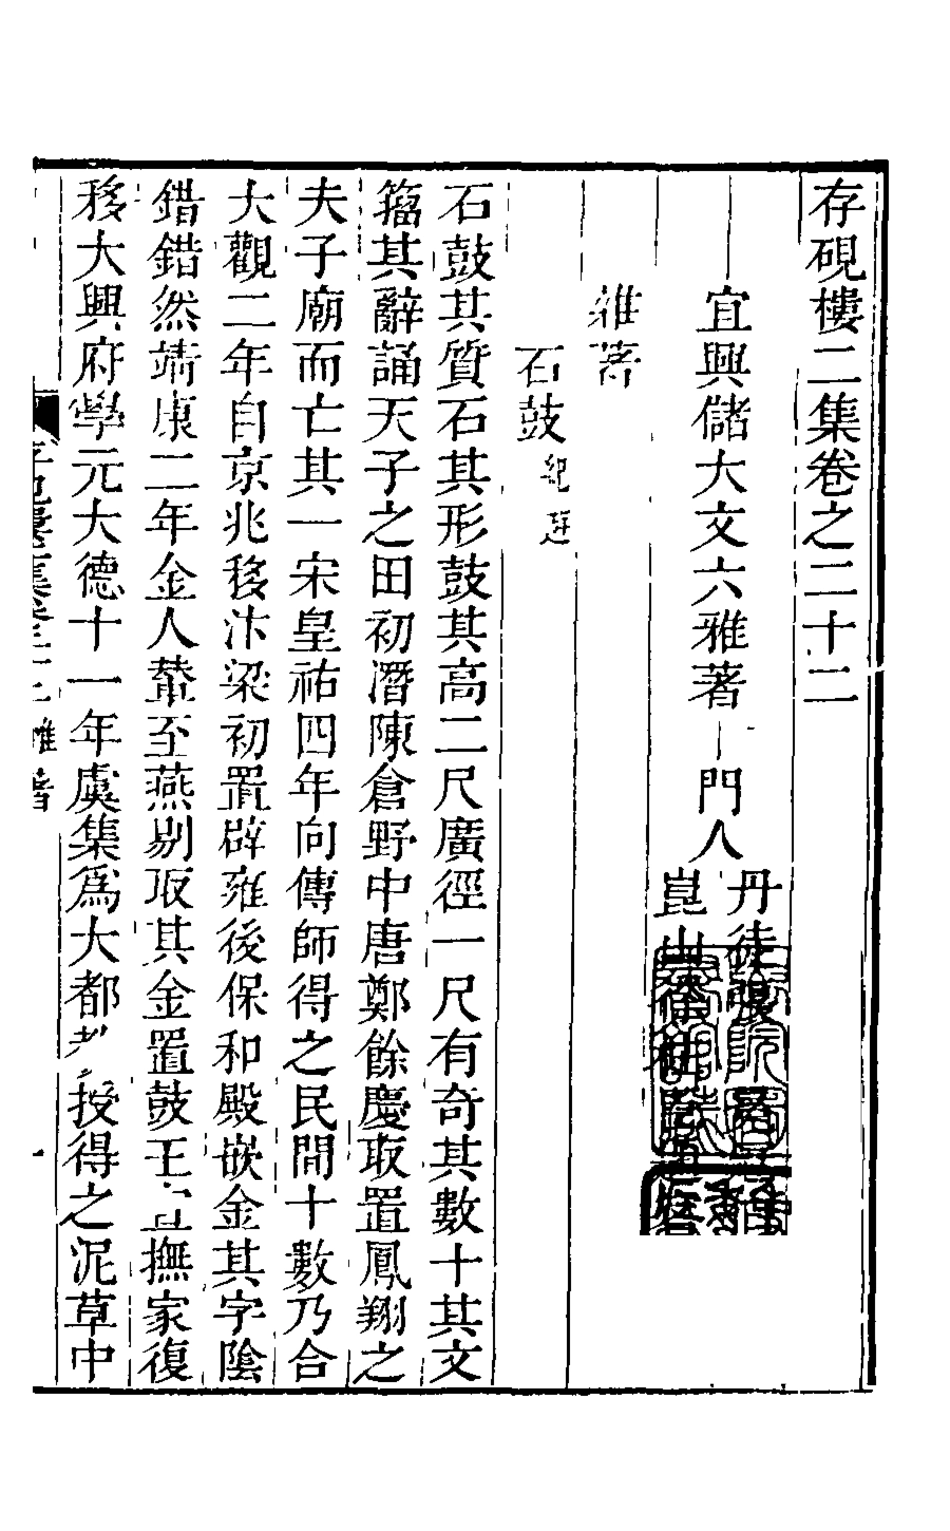 存硯樓二集卷之二十二
宜興儲大文六雅著 門人
丹徒
崑山徐
雜著
石鼓
石鼓其質石其形鼓其高二尺廣徑一尺有奇其數十其文
籀其辭誦天子之田初潛陳倉野中唐鄭餘慶取置鳳翔之
夫子廟而亡其一宋皇祐四年向傳師得之民間十數乃合
大觀二年自京兆移汴梁初置辟雍後保和殿嵌金其字陰
錯錯然靖康二年金人輦至燕剔取其金置鼓王宣撫家復
移大興府學元大德十一年虞集爲大都教授得之泥草中
雜著